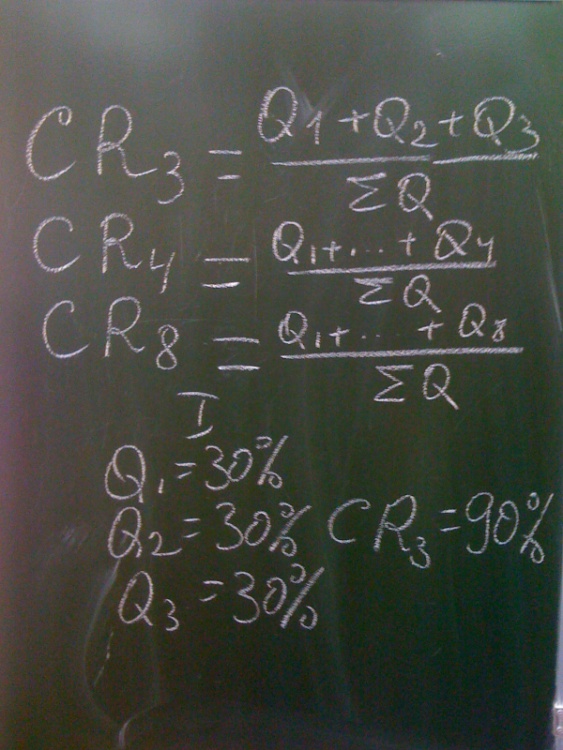 CR₃ = Q₁ + Q₂ + Q₃ / ΣQ
CR₄ = Q₁ + ... + Q₄ / ΣQ
CR₈ = Q₁ + ... + Q₈ / ΣQ
I
Q₁ = 30%
Q₂ = 30% CR₃ = 90%
Q₃ = 30%